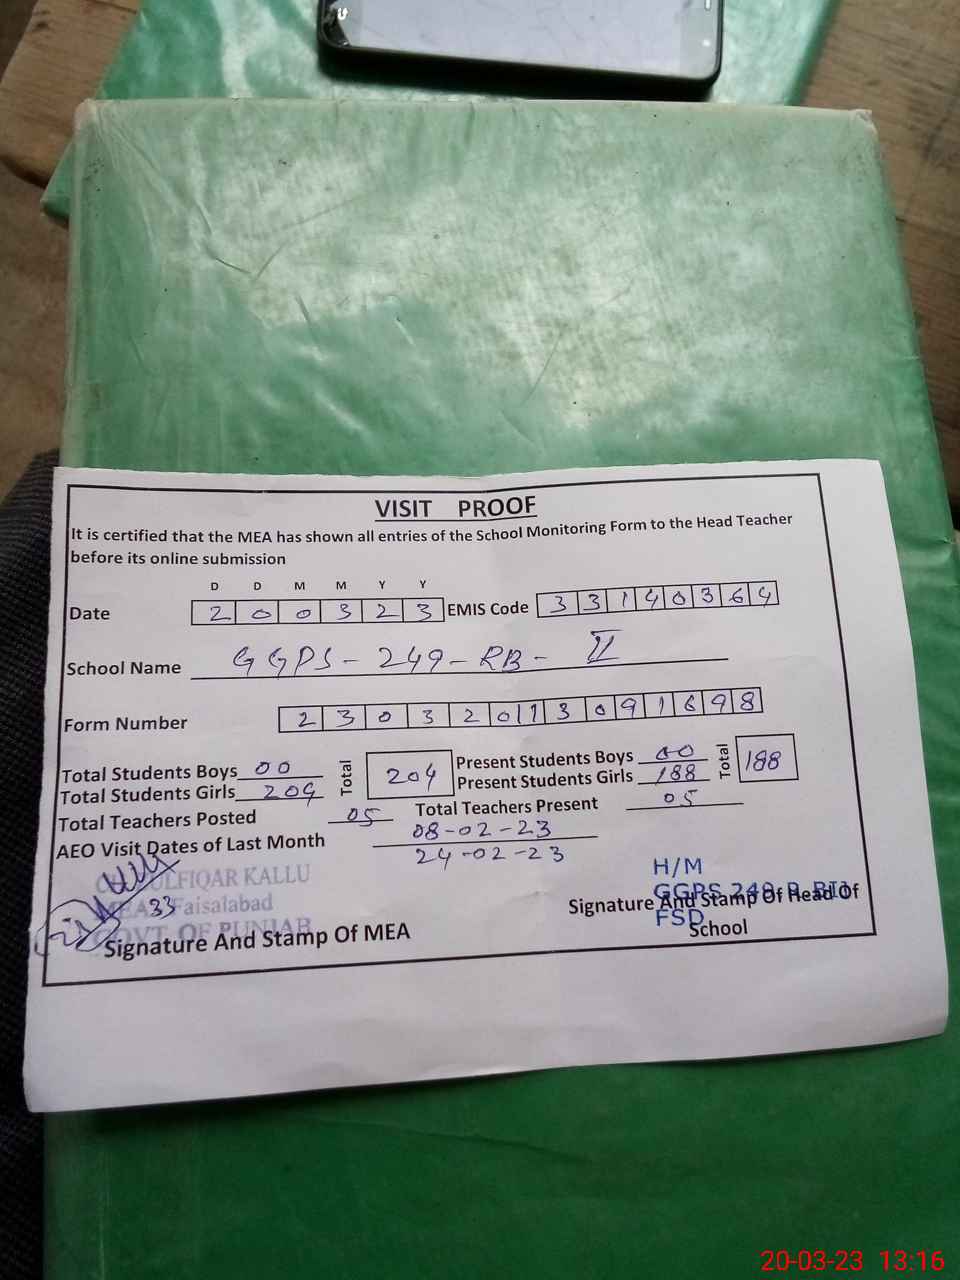 VISIT PROOF
It is certified that the MEA has shown all entries of the School Monitoring Form to the Head Teacher
before its online submission
D D M M Y Y
Date 2 0 0 3 2 3 EMIS Code 3 3 1 4 0 3 6 4
School Name GGPS - 249 - RB - II
Form Number 2 3 0 3 2 0 1 1 3 0 9 1 6 9 8
Total Students Boys 00 Total 204 Present Students Boys 00 Total 188
Total Students Girls 204 Present Students Girls 188
Total Teachers Posted 05 Total Teachers Present 05
AEO Visit Dates of Last Month 08-02-23
24-02-23
ULFIQAR KALLU
MEA 33 Faisalabad
GOVT. OF PUNJAB
Signature And Stamp Of MEA
H/M
GGPS 249 R.B II
FSD
Signature And Stamp Of Head Of
School
20-03-23 13:16